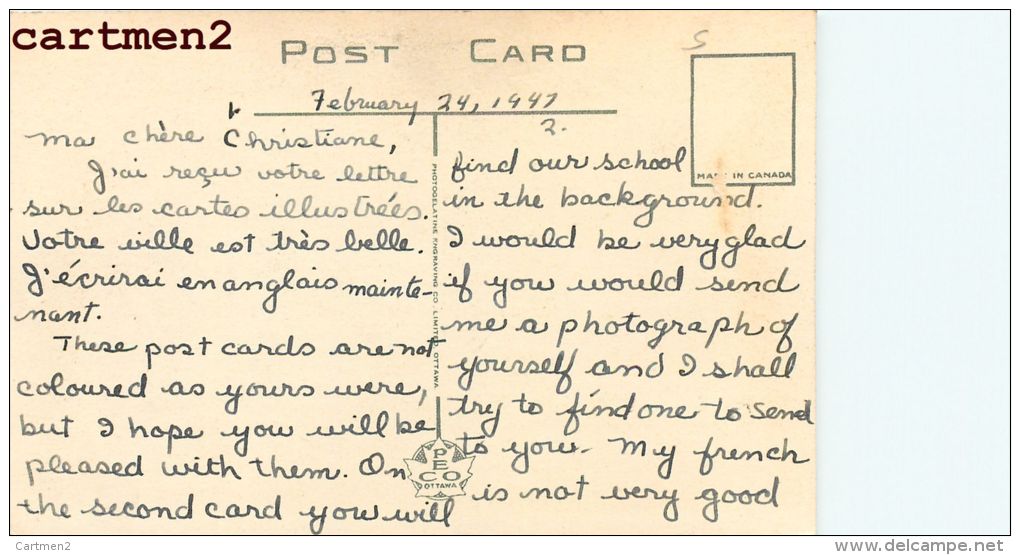 cartmen2
POST CARD
S
February 24, 1947
2.
MADE IN CANADA
Ma chère Christiane,
J'ai reçu votre lettre
sur les cartes illustrées.
Votre ville est très belle.
J'écrirai en anglais mainte-
nant.
These post cards are not
coloured as yours were,
but I hope you will be
pleased with them. On
the second card you will
PHOTOGELATINE ENGRAVING CO. LIMITED, OTTAWA
PECO
OTTAWA
find our school
in the background.
I would be very glad
if you would send
me a photograph of
yourself and I shall
try to find one to send
to you. My french
is not very good
Cartmen2
http://www.delcampe.net